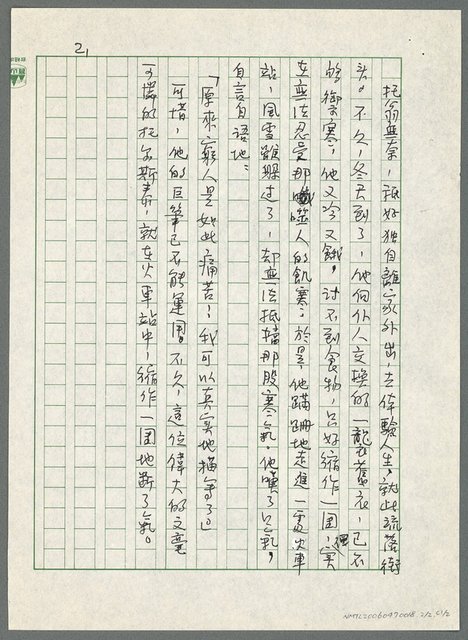 2,
托翁無奈，祇好独自離家外出，去体驗人生，就此流落街
头。不久，冬天到了，他向仆人交換的一龍老舊衣，已不
能御寒；他又冷又餓，讨不到食物，只好縮作一团，实
在無法忍受那噬人的飢寒；於是，他蹒跚地走進一處火車
站，風雪雖躲过了，却無法抵擋那股寒氣。他嘆了口氣，
自言自语地：
「原來窮人是如此痛苦！我可以真实地描写了。」
可惜，他的巨筆已不能運用。不久，這位偉大的文豪
可憐的托尔斯泰，就在火車站中，縮作一团地断了氣。
NMTL20060970018 2/2